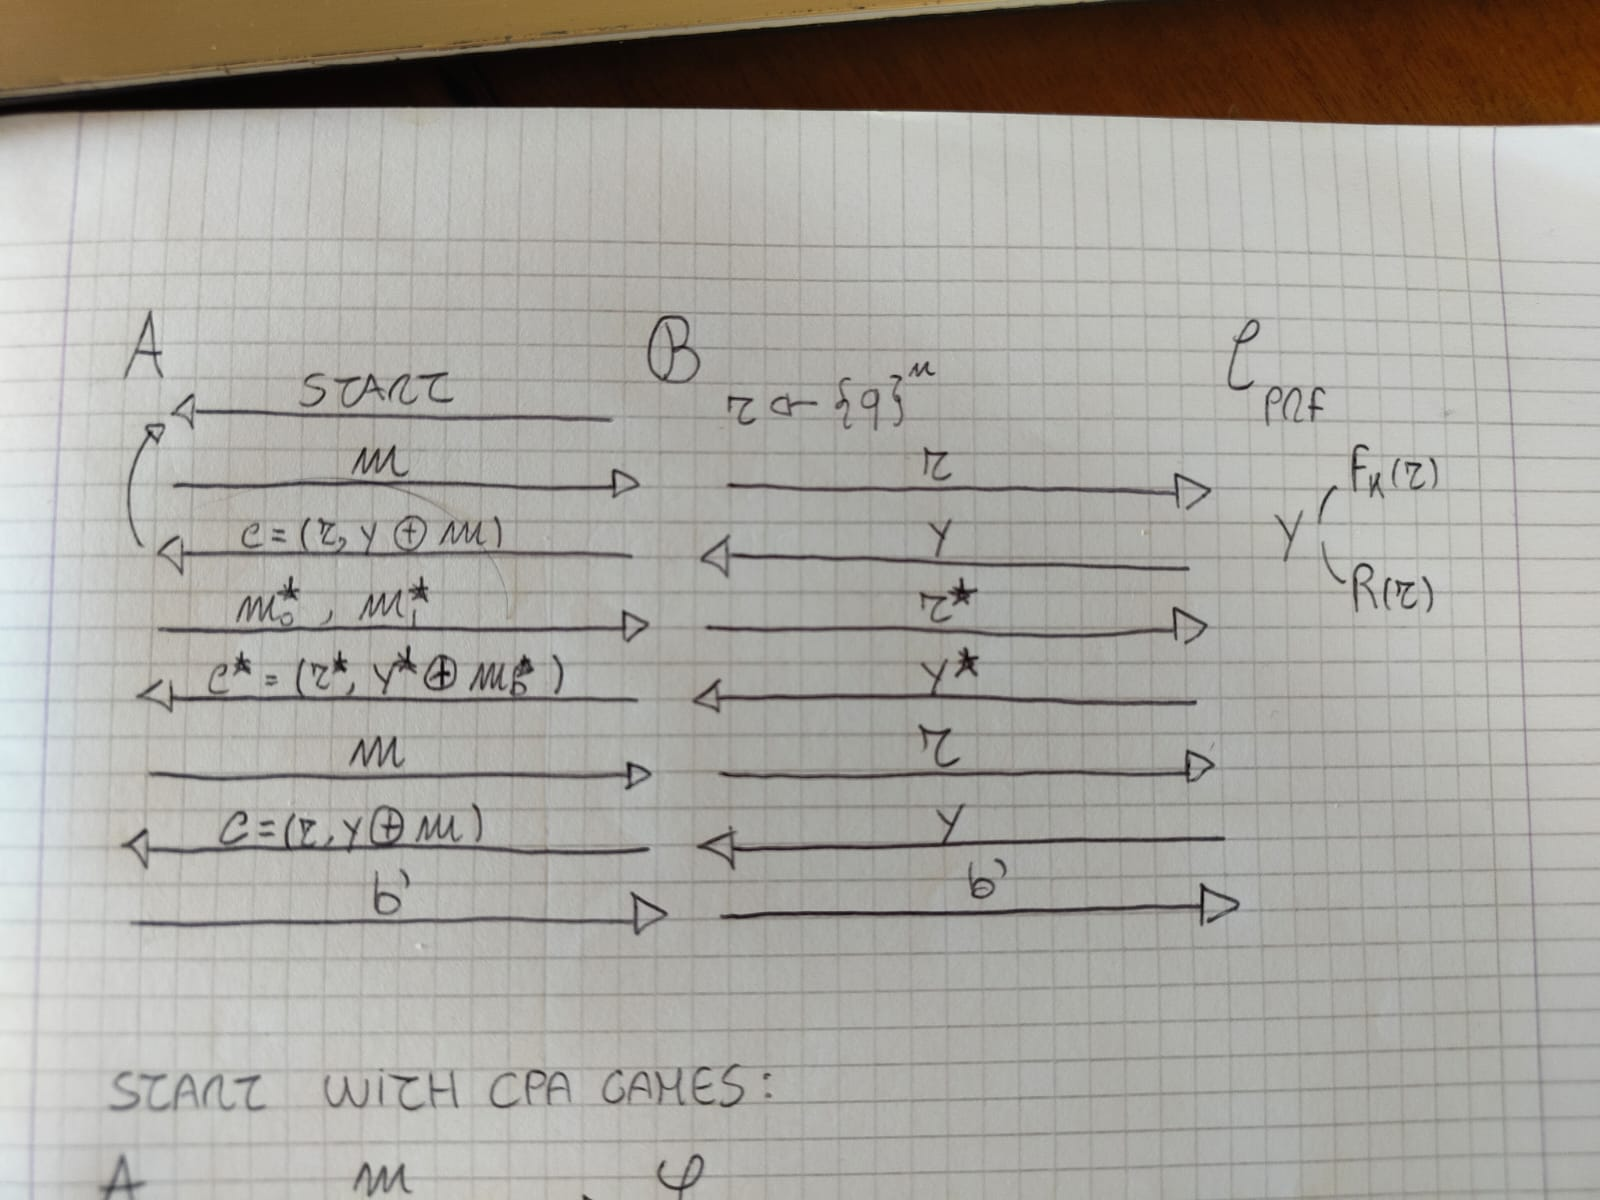 A B C_PRF
START r ← {b}^n
m r F_K(r)
c = (r, y ⊕ m) y y
m_0^*, m_1^* r* R(r)
c* = (r*, y* ⊕ m_b^*) y*
m r
C = (r, y ⊕ m) y
b' b'
START WITH CPA GAMES:
A m